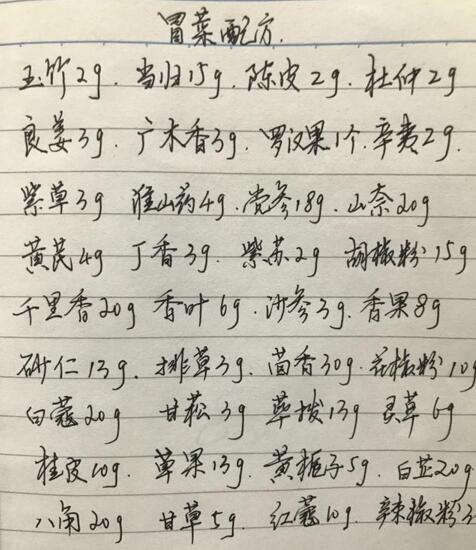 冒菜配方.
玉竹2g. 当归15g. 陈皮2g. 杜仲2g
良姜3g. 广木香3g. 罗汉果1个. 辛夷2g.
紫草3g 淮山药4g. 党参18g. 山奈20g
黄芪4g 丁香3g. 紫苏2g 胡椒粉15g
千里香20g 香叶6g. 沙参3g. 香果8g
砂仁13g. 排草3g. 茴香30g. 花椒粉10g
白蔻20g 甘松3g 荜拨13g 灵草6g
桂皮10g. 草果13g. 黄栀子5g. 白芷20g
八角20g 甘草5g. 红蔻10g. 辣椒粉